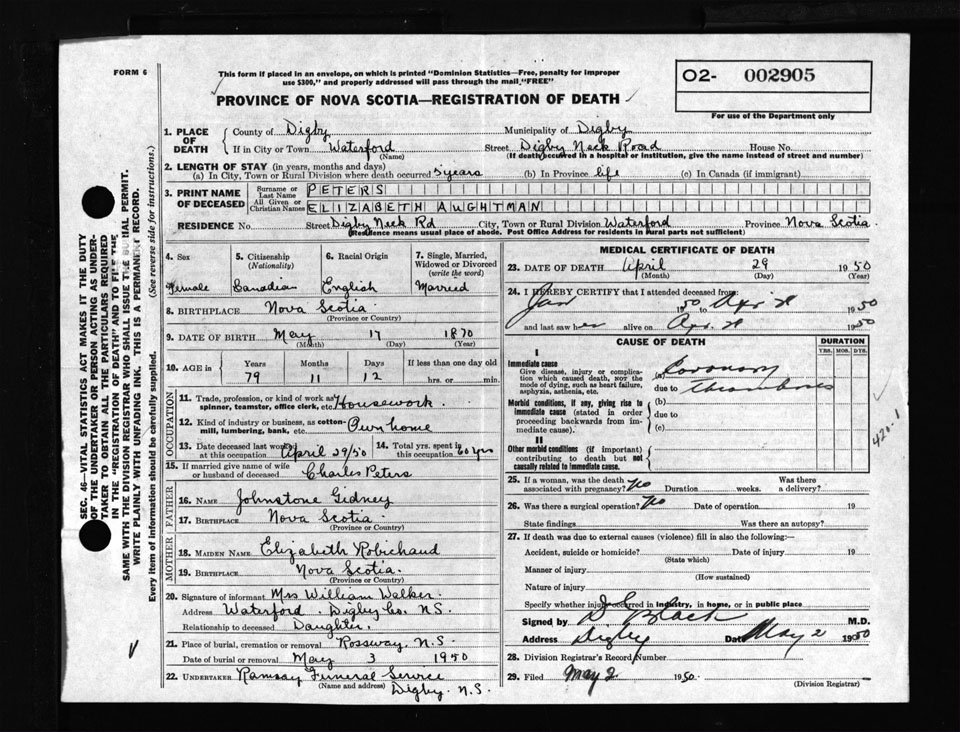 FORM 6
This form if placed in an envelope, on which is printed "Dominion Statistics—Free, penalty for improper
use $300," and properly addressed will pass through the mail "FREE"
O2- 002905
For use of the Department only
PROVINCE OF NOVA SCOTIA—REGISTRATION OF DEATH
1. PLACE OF DEATH { County of Digby Municipality of Digby
If in City or Town Waterford (Name) Street Digby Neck Road House No.
(If death occurred in a hospital or institution, give the name instead of street and number)
2. LENGTH OF STAY (in years, months and days)
(a) In City, Town or Rural Division where death occurred 5 years (b) In Province life (c) In Canada (if immigrant)
3. PRINT NAME OF DECEASED { Surname or Last Name PETERS
All Given or Christian Names ELIZABETH AUGHTMAN
RESIDENCE No. Street Digby Neck Rd City, Town or Rural Division Waterford Province Nova Scotia
(Residence means usual place of abode. Post Office Address for residents in rural parts not sufficient)
4. Sex Female
5. Citizenship (Nationality) Canadian
6. Racial Origin English
7. Single, Married, Widowed or Divorced (write the word) Married
8. BIRTHPLACE Nova Scotia
(Province or Country)
9. DATE OF BIRTH May 17 1870
(Month) (Day) (Year)
10. AGE in { Years Months Days If less than one day old
79 11 12 hrs. or min.
OCCUPATION
11. Trade, profession, or kind of work as spinner, teamster, office clerk, etc. Housework.
12. Kind of industry or business, as cotton-mill, lumbering, bank, etc. Own home
13. Date deceased last worked at this occupation April 29/50
14. Total yrs. spent in this occupation 60 yrs
15. If married give name of wife or husband of deceased Charles Peters
FATHER
16. NAME Johnstone Gidney
17. BIRTHPLACE Nova Scotia
(Province or Country)
MOTHER
18. MAIDEN NAME Elizabeth Robichaud
19. BIRTHPLACE Nova Scotia.
(Province or Country)
20. Signature of informant Mrs William Walker
Address Waterford. Digby Co. N.S.
Relationship to deceased Daughter.
21. Place of burial, cremation or removal Rossway N.S
Date of burial or removal May 3 1950
22. UNDERTAKER Ramsay Funeral Service
(Name and address) Digby. N.S.
MEDICAL CERTIFICATE OF DEATH
23. DATE OF DEATH April 29 1950
(Month) (Day) (Year)
24. I HEREBY CERTIFY that I attended deceased from:
Jan 1950 to Apr 28 1950
and last saw her alive on Apr. 28 1950
CAUSE OF DEATH DURATION
YRS. MOS. DYS.
I
Immediate cause
Give disease, injury or complication which caused death, NOT the mode of dying, such as heart failure, asphyxia, asthenia, etc.
(a) Coronary
due to Thrombosis
Morbid conditions, if any, giving rise to immediate cause (stated in order proceeding backwards from immediate cause).
(b)
due to
(c)
II
Other morbid conditions (if important) contributing to death but not causally related to immediate cause.
420.1
25. If a woman, was the death associated with pregnancy? No Duration weeks. Was there a delivery?
26. Was there a surgical operation? No Date of operation 19
State findings Was there an autopsy?
27. If death was due to external causes (violence) fill in also the following:—
Accident, suicide or homicide? Date of injury 19
(State which)
Manner of injury
(How sustained)
Nature of injury
Specify whether injury occurred in industry, in home, or in public place
Signed by Black M.D.
Address Digby Date May 2 1950
28. Division Registrar's Record Number
29. Filed May 2 1950.
(Division Registrar)
SEC. 46—VITAL STATISTICS ACT MAKES IT THE DUTY
OF THE UNDERTAKER OR PERSON ACTING AS UNDER-
TAKER TO OBTAIN ALL THE PARTICULARS REQUIRED
IN THE "REGISTRATION OF DEATH" AND TO FILE THE
SAME WITH THE DIVISION REGISTRAR WHO SHALL ISSUE THE BURIAL PERMIT.
WRITE PLAINLY WITH UNFADING INK. THIS IS A PERMANENT RECORD.
Every item of information should be carefully supplied. (See reverse side for instructions.)